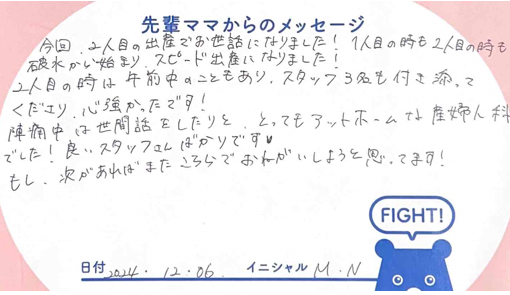 先輩ママからのメッセージ
今回、2人目の出産でお世話になりました！1人目の時も2人目の時も
破水から始まり、スピード出産になりました！
2人目の時は午前中のこともあり、スタッフ3名も付き添って
くださり、心強かったです！
陣痛中は世間話をしたりと、とってもアットホームな産婦人科
でした！良いスタッフさんばかりです♥
もし、次があればまたこちらでおねがいしようと思ってます！
FIGHT!
日付 2024.12.06 イニシャル M.N